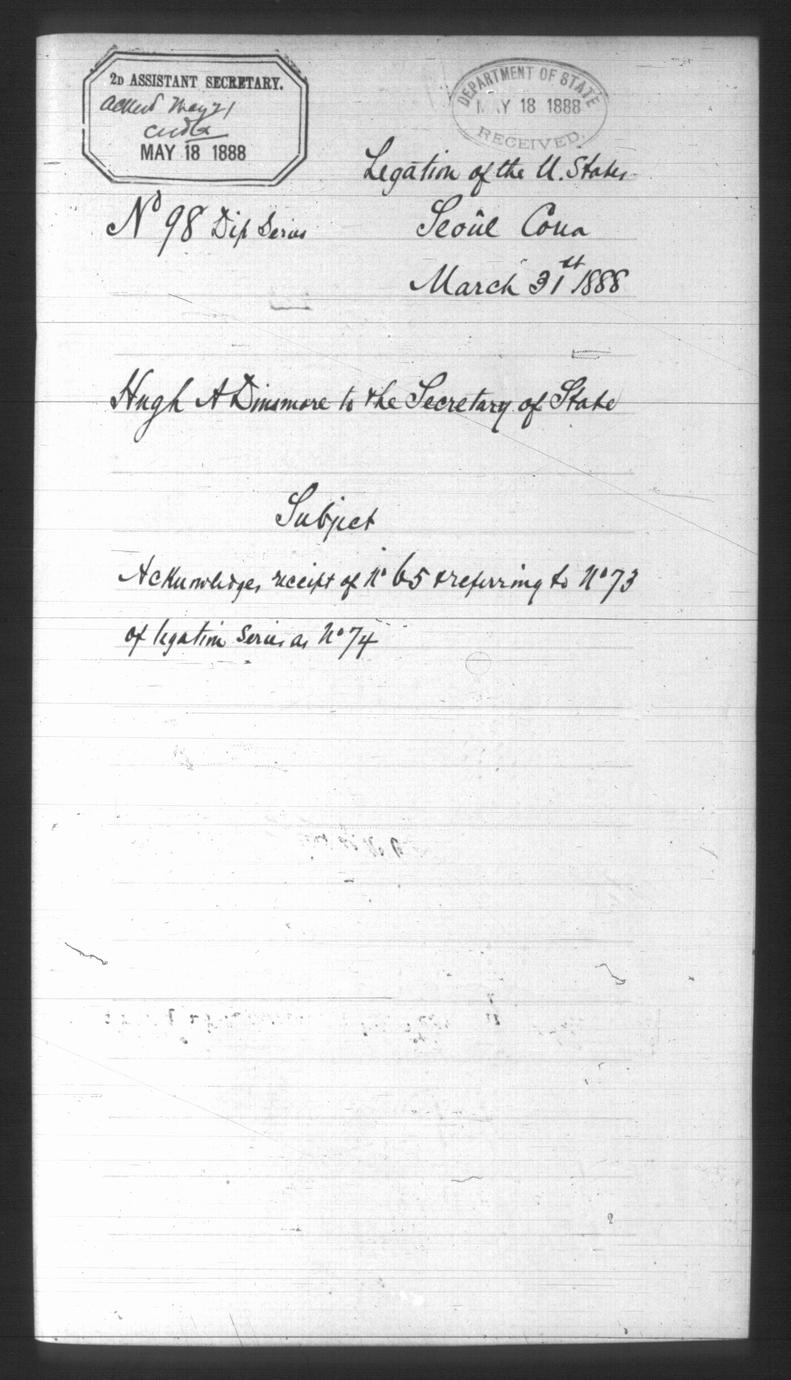 2D ASSISTANT SECRETARY.
May 21
MAY 18 1888
DEPARTMENT OF STATE
MAY 18 1888
RECEIVED.
Legation of the U. States
No 98 Dip Series
Seoul Corea
March 31st 1888
Hugh A Dinsmore to the Secretary of State
Subject
Acknowledges receipt of No 65 & referring to No 73
of legation series as No 74